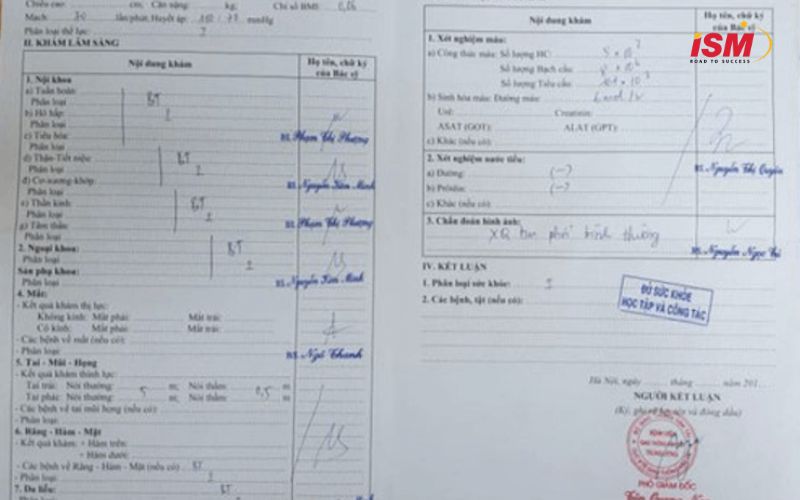 Chiều cao: cm; Cân nặng: kg; Chỉ số BMI:
Mạch: 70 lần/phút; Huyết áp: mmHg
Phân loại thể lực:
II. KHÁM LÂM SÀNG
Nội dung khám
Họ tên, chữ ký của Bác sỹ
1. Nội khoa
a) Tuần hoàn:
Phân loại
BT
b) Hô hấp:
Phân loại
c) Tiêu hóa:
Phân loại
BS. Phạm Thị Phượng
d) Thận-Tiết niệu:
Phân loại
BT
đ) Cơ-xương-khớp:
Phân loại
BS. Nguyễn Kim Minh
e) Thần kinh:
Phân loại
BT
g) Tâm thần:
Phân loại
BS. Phạm Thị Phượng
2. Ngoại khoa:
Phân loại
BT
Sản phụ khoa:
Phân loại
BS. Nguyễn Kim Minh
4. Mắt:
- Kết quả khám thị lực:
Không kính: Mắt phải: Mắt trái:
Có kính: Mắt phải: Mắt trái:
- Các bệnh về mắt (nếu có):
- Phân loại:
BS. Ngô Thanh
5. Tai - Mũi - Họng
- Kết quả khám thính lực:
Tai trái: Nói thường: m; Nói thầm: m
Tai phải: Nói thường: 5 m; Nói thầm: 0,5 m
- Các bệnh về tai mũi họng (nếu có):
- Phân loại:
6. Răng - Hàm - Mặt
- Kết quả khám: + Hàm trên:
+ Hàm dưới:
- Các bệnh về Răng - Hàm - Mặt (nếu có) BT
- Phân loại:
7. Da liễu: BT
iSM
ROAD TO SUCCESS
Nội dung khám
Họ tên, chữ ký của Bác sỹ
1. Xét nghiệm máu:
a) Công thức máu: Số lượng HC:
Số lượng Bạch cầu:
Số lượng Tiểu cầu:
b) Sinh hóa máu: Đường máu:
Urê: Creatinin:
ASAT (GOT): ALAT (GPT):
c) Khác (nếu có):
BS. Nguyễn Thị Quyên
2. Xét nghiệm nước tiểu:
a) Đường: (-)
b) Prôtêin: (-)
c) Khác (nếu có):
3. Chẩn đoán hình ảnh:
XQ tim phổi bình thường
BS. Nguyễn Ngọc
IV. KẾT LUẬN
1. Phân loại sức khỏe: I
2. Các bệnh, tật (nếu có):
ĐỦ SỨC KHỎE
HỌC TẬP VÀ CÔNG TÁC
Hà Nội, ngày tháng năm 201
NGƯỜI KẾT LUẬN
(Ký, ghi rõ họ tên và đóng dấu)
PHÓ GIÁM ĐỐC